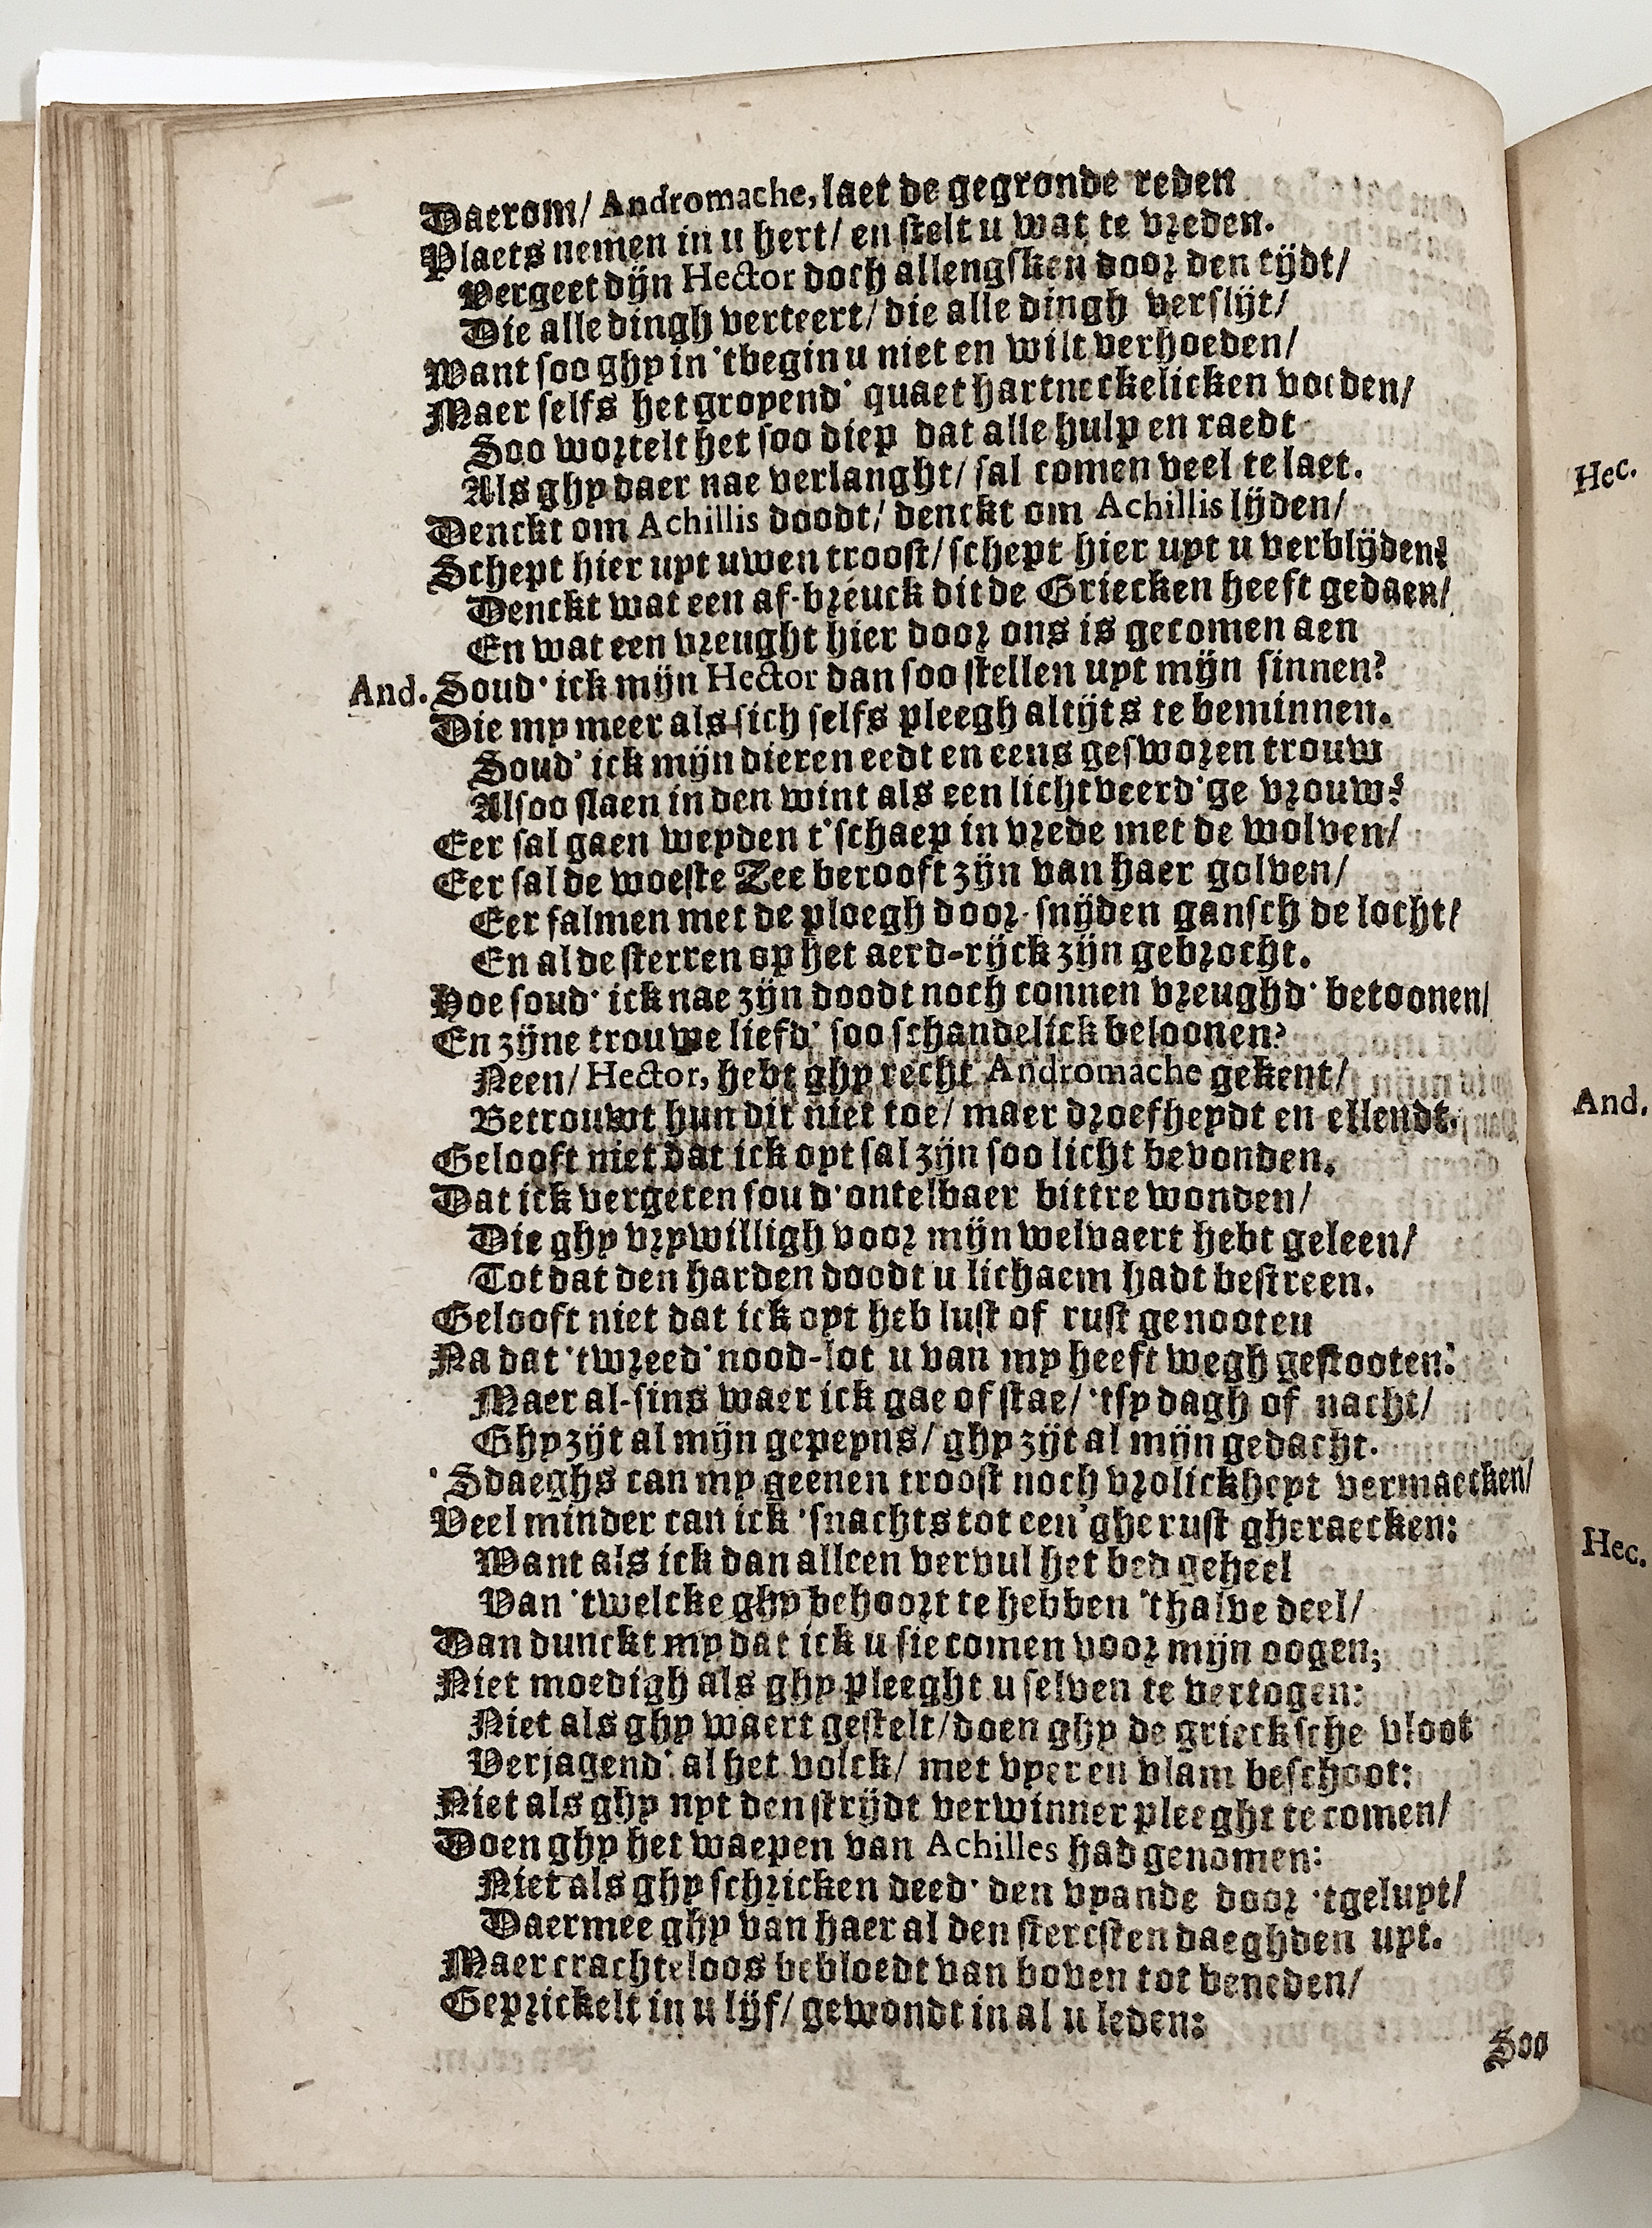 Daerom/ Andromache, laet de gegronde reden
Plaets nemen in u hert/ en stelt u wat te vreden.
Vergeet dijn Hector doch allengsken door den tijdt/
Die alle dingh verteert/ die alle dingh verslijt/
Want soo ghy in 'tbegin u niet en wilt verhoeden/
Maer selfs het groyend' quaet hartneckelicken voeden/
Soo wortelt het soo diep dat alle hulp en raedt
Als ghy daer nae verlanght/ sal comen veel te laet.
Denckt om Achillis doodt/ denckt om Achillis lijden/
Schept hier uyt uwen troost/ schept hier uyt u verblijden:
Denckt wat een af-breuck dit de Griecken heeft gedaen/
En wat een vreught hier door ons is gecomen aen
And. Soud' ick mijn Hector dan soo stellen uyt mijn sinnen?
Die my meer als sich selfs pleegh altijts te beminnen.
Soud' ick mijn dieren eedt en eens gesworen trouw
Alsoo slaen in den wint als een lichtveerd'ge vrouw?
Eer sal gaen weyden t'schaep in vrede met de wolven/
Eer sal de woeste Zee berooft zijn van haer golven/
Eer salmen met de ploegh door-snijden gansch de locht/
En al de sterren op het aerd-rijck zijn gebrocht.
Hoe soud' ick nae zijn doodt noch connen vreughd' betoonen/
En zijne trouwe liefd' soo schandelick beloonen?
Neen/ Hector, hebt ghy recht Andromache gekent/
Betrouwt hun dit niet toe/ maer droefheydt en ellendt.
Gelooft niet dat ick oyt sal zijn soo licht bevonden,
Dat ick vergeten soud' ontelbaer bittre wonden/
Die ghy vrywilligh voor mijn welvaert hebt geleen/
Tot dat den harden doodt u lichaem hadt bestreen.
Gelooft niet dat ick oyt heb lust of rust genooten
Na dat 'twreed' nood-lot u van my heeft wegh gestooten:
Maer al-sins waer ick gae of stae/ 'tsy dagh of nacht/
Ghy zijt al mijn gepeyns/ ghy zijt al mijn gedacht.
'Sdaeghs can my geenen troost noch vrolickheyt vermaecken/
Veel minder can ick 'snachts tot een'ghe rust gheraecken:
Want als ick dan alleen vervul het bed geheel
Van 'twelcke ghy behoort te hebben 'thalve deel/
Dan dunckt my dat ick u sie comen voor mijn oogen;
Niet moedigh als ghy pleeght u selven te vertogen:
Niet als ghy waert gestelt/ doen ghy de griecksche vloot
Verjagend' al het volck/ met vyer en vlam beschoot:
Niet als ghy uyt den strijdt verwinner pleeght te comen/
Doen ghy het waepen van Achilles had genomen:
Niet als ghy schricken deed' den vyande door 'tgeluyt/
Daermee ghy van haer al den stercsten daeghden uyt.
Maer crachteloos bebloedt van boven tot beneden/
Geprickelt in u lijf/ gewondt in al u leden:
Soo
Hec.
And.
Hec.